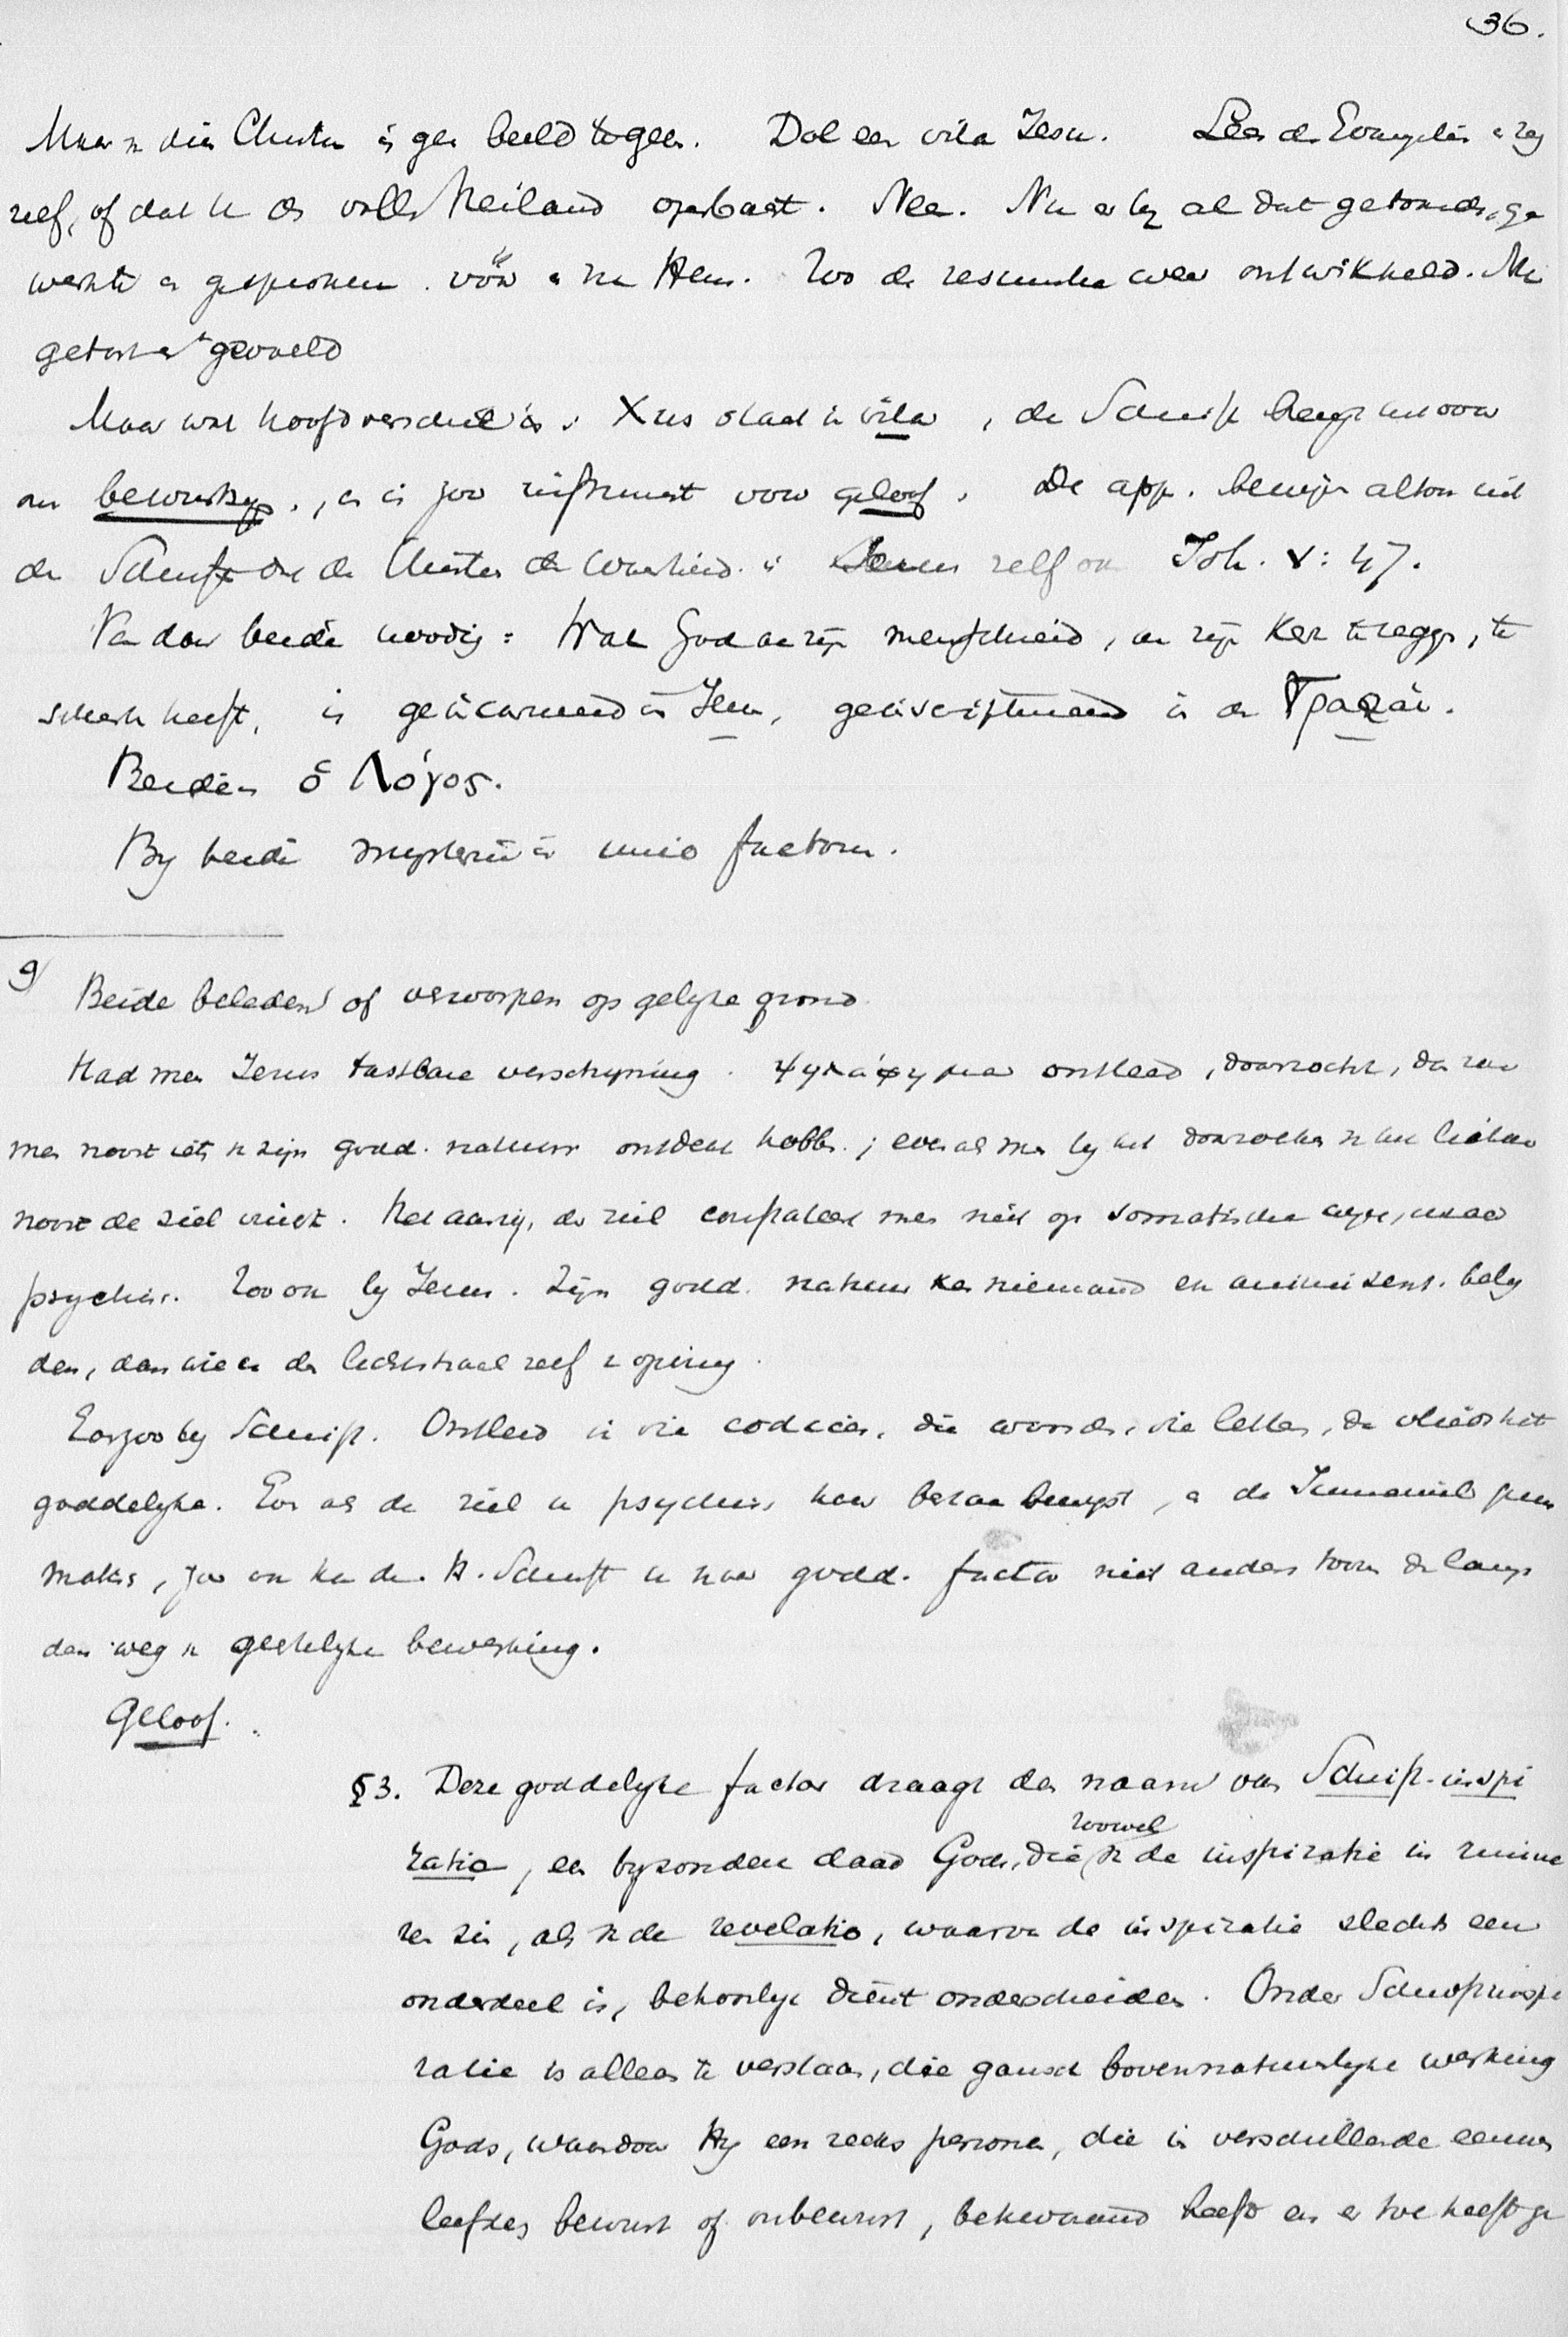 36.
Maar v. dien Christus is geen beeld te geen. Dol een vita Jesu. Lees de Evangeliën e zeg
zelf, of dat U de volle Heiland openbaart. Nee. Nu er by al dat getoonde, ge
werkte en gesproken vóór en na Hem. Zoo de weer ontwikkeld.
geworteld
Maar wat hoofdverschil is: Xus staat in vita, de Schrift brengt
ons bewustzyn, en is zoo instrument voor geloof. De app. bewyzen altoos uit
de Schrift dat de Christus de waarheid is Jezus zelf ook Joh. V: 47.
Van daar beide noodig: Wat God aan zyn menschheid, aan zyn Kerk te zeggen, te
schenken heeft, is geincarneerd in Jezus, geinscriptureerd in de Γραφαι.
Beiden ὁ Λόγος.
By beide mysterie in unio factorum.
9/ Beide beleden of verworpen op gelyke grond.
Had men Jezus tastbare verschyning ontleed, doorzocht, dan zou
men nooit iets v. zijn godd. natuur ontdekt hebben; evenals men by het doorzoeken v. het lichaam
nooit de ziel vindt. Het aanzyn der ziel constateert men niet op somatische wyze, maar
psychisch. Zoo ook by Jezus. Zyn godd. natuur kan niemand en bely
den, dan wien de lichtstraal zelf v opving.
Eveneens by Schrift. Ontleed in die codices, die woorden, die letters, dan vliedt het
goddelyke. Even als de ziel psychisch haar bestaan bewyst, en de Immanuel
maken, zoo ook kan de H. Schrift haar godd. factor niet anders toonen dan langs
den weg v. geestelyke bewerking.
Geloof.
§3. Deze goddelyke factor draagt den naam van Schrift-inspi
ratie, een byzondere daad Gods, die zoowel v. de inspiratie in ruime
ren zin, als v. de revelatio, waarvan de inspiratie slechts een
onderdeel is, behoorlyk dient onderscheiden. Onder Schriftinspi
ratie is alleen te verstaan, die gansch bovennatuurlyke werking
Gods, waardoor Hy een reeks personen, die in verschillende eeuwen
leefden bewust of onbewust, bekwaamd heeft en er toe heeft ge